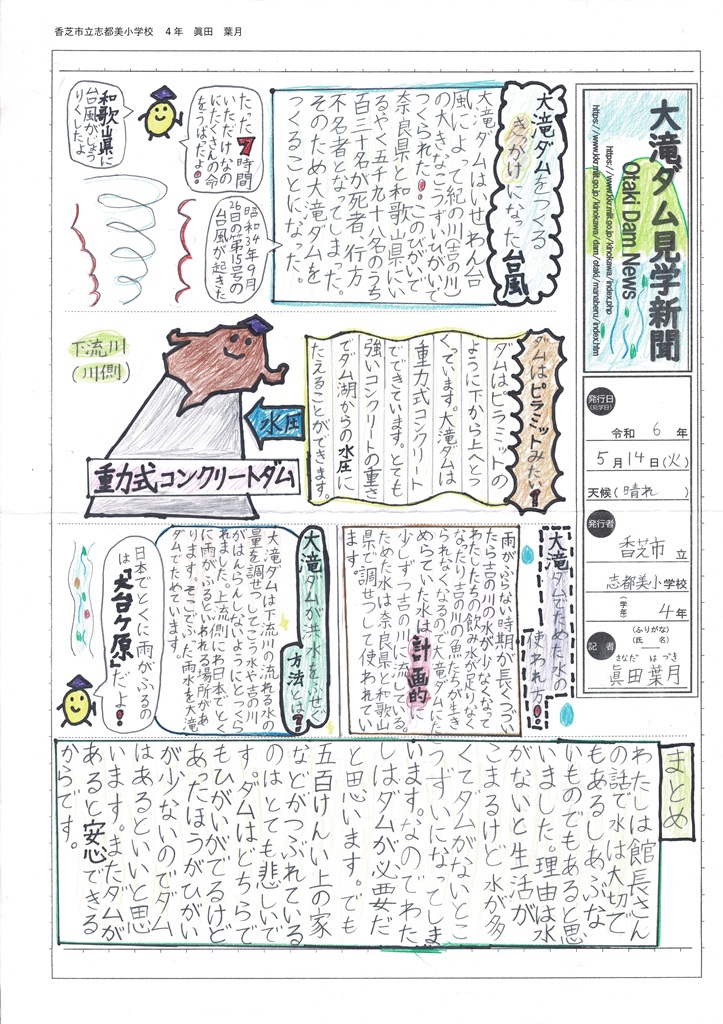 香芝市立志都美小学校　4年　眞田　葉月
大滝ダム見学新聞
Otaki Dam News
https://www.kkr.mlit.go.jp/kinokawa/index.php
https://www.kkr.mlit.go.jp/kinokawa/dam/otaki/manaberu/index.htm
発行日
(見学日)
令和　6　年
5月14日(火)
天候(晴れ)
発行者
香芝市 立
志都美小学校
(学年)　4年
記者
(ふりがな)
(氏　名)
さなだ　はづき
眞田葉月
大滝ダムをつくる
きっかけになった台風
大滝ダムはいせわん台
風によって紀の川(吉の川)
の大きなこうずいひがいで
つくられた!このひがいで
奈良県と和歌山県にい
るやく五千九十八名のうち
百三十名が死者、行方
不名者となってしまった。
そのため大滝ダムを
つくることになった。
昭和34年9月
26日の第15号の
台風が起きた
ただ7時間
いただけなの
にたくさんの命
をうばったよ!
和歌山県に
台風がじょう
りくしたよ
ダムはピラミットみたい?
ダムはピラミットの
ように下から上へとつ
くっています。大滝ダムは
重力式コンクリート
でできています。とても
強いコンクリートの重さ
でダム湖からの水圧に
たえることができます。
水圧
下流川
(川側)
重力式コンクリートダム
大滝ダムでためた水の
使われ方!
雨がふらない時期が長くつづい
たら吉の川の水が少なくなって
わたしたちの飲み水が足りなく
なったり吉の川の魚たちが生き
られなくなるので大滝ダムにた
めらていた水は計画的に
少しずつ吉の川に流している。
ためた水は奈良県と和歌山
県で調せつして使われてい
ます。
大滝ダムが洪水をふせぐ
方法とは?
大滝ダムは下流川の流れる水の
量を調せつしてこう水や吉の川
がはんらんしないようにとつくら
れました。上流側にわ日本でとく
に雨がふるといわれる場所があ
ります。そこでふった雨水を大滝
ダムでためています。
日本でとくに雨がふるの
は「大台ケ原」だよ!
まとめ
わたしは館長さん
の話で水は大切で
もあるしあぶな
いものでもあると思
いました。理由は水
がないと生活が
こまるけど水が多
くてダムがないとこ
うずいになってしま
います。なのでわた
しはダムが必要だ
と思います。でも
五百けんい上の家
などがつぶれている
のはとても悲しいで
す。ダムはどちらで
もひがいがでるけど
あったほうがひがい
が少ないのでダム
はあるといいと思
います。またダムが
あると安心できる
からです。